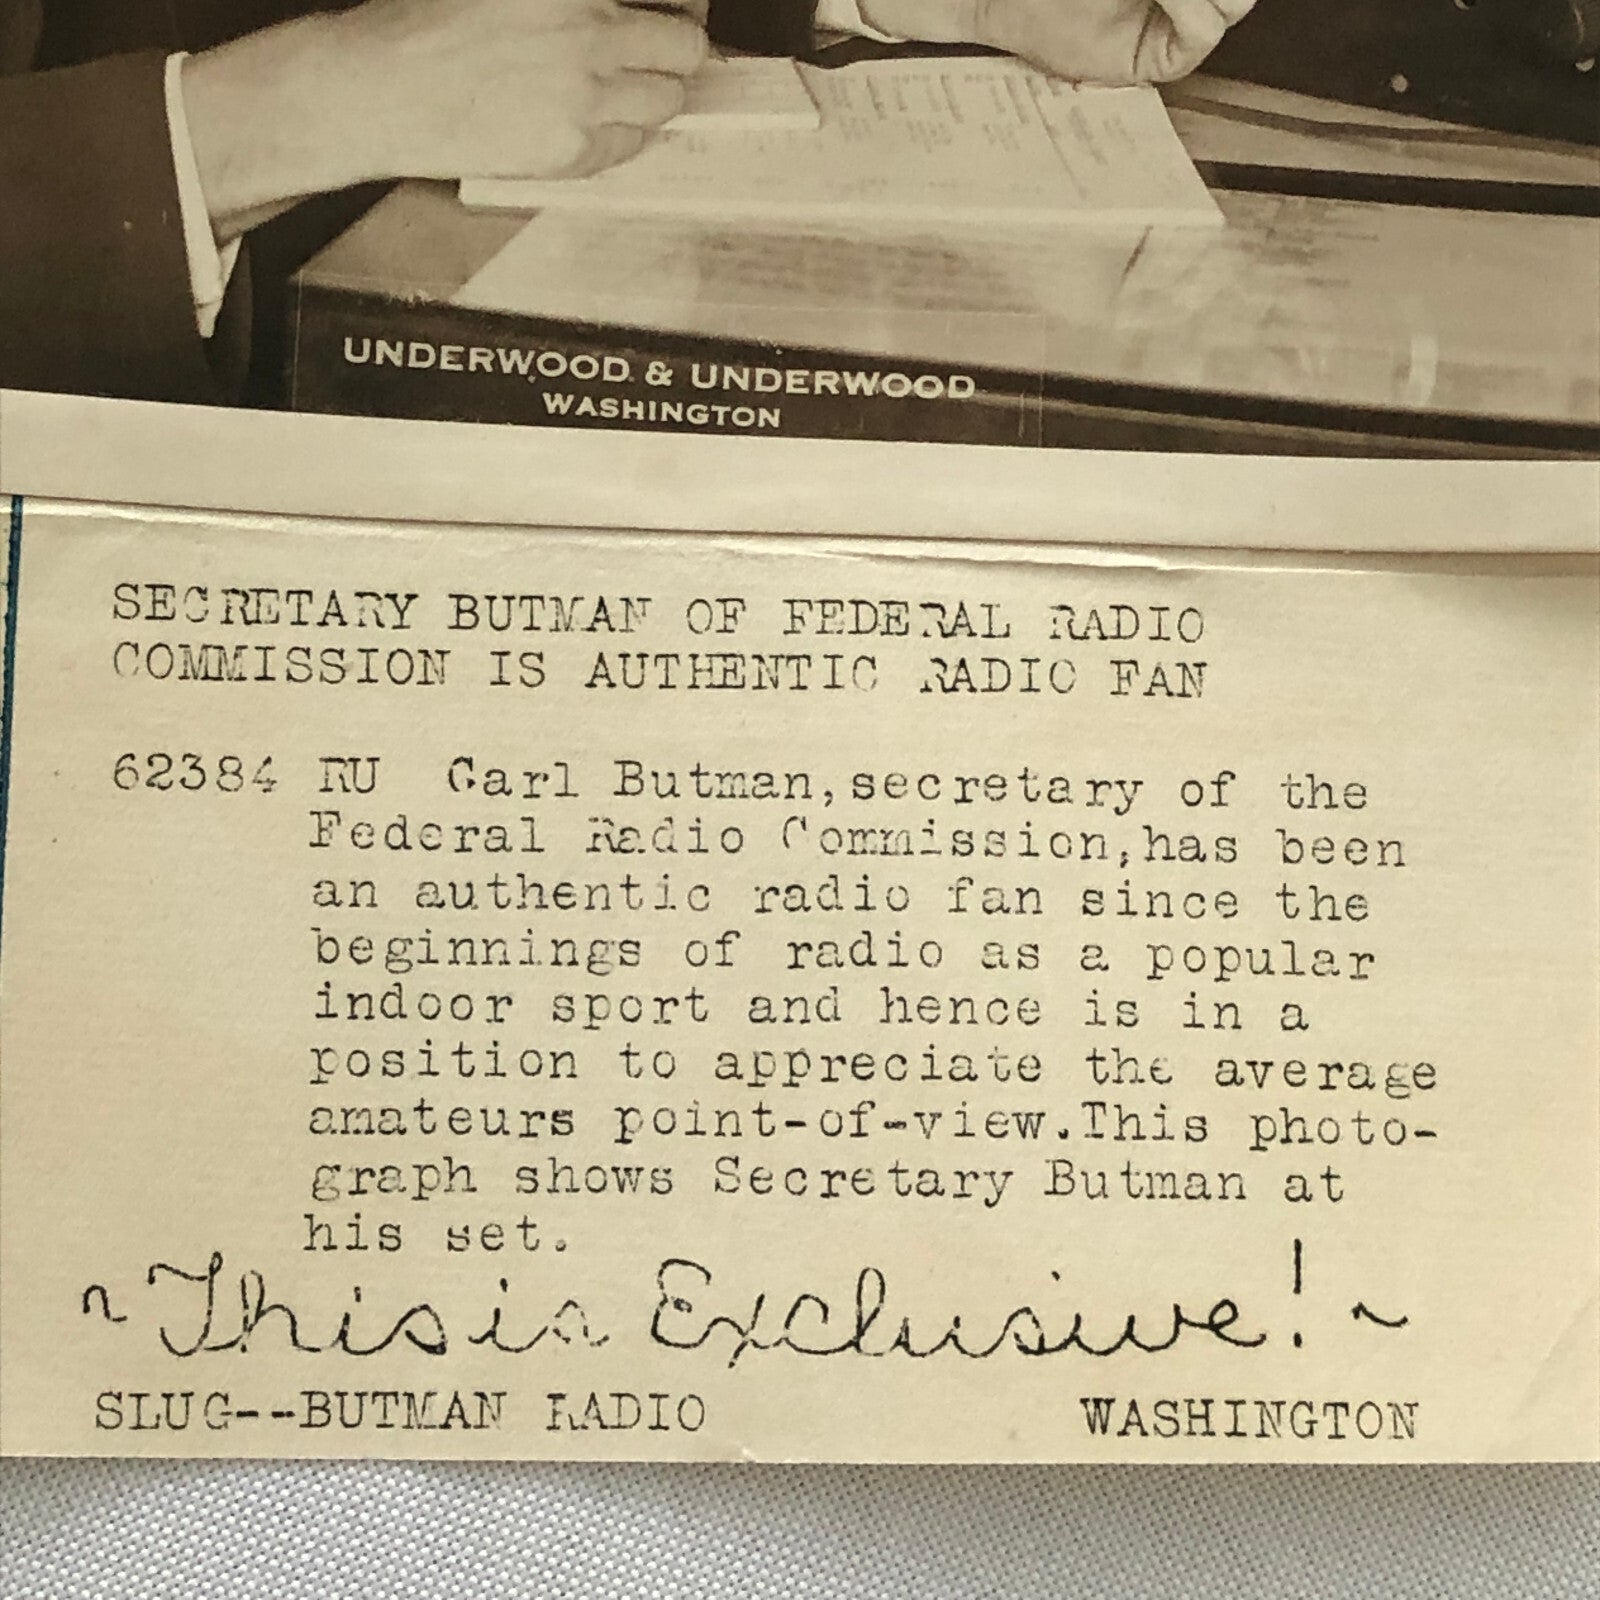 UNDERWOOD & UNDERWOOD
WASHINGTON
SECRETARY BUTMAN OF FEDERAL RADIO
COMMISSION IS AUTHENTIC RADIO FAN
62384 RU Carl Butman,secretary of the
Federal Radio Commission,has been
an authentic radio fan since the
beginnings of radio as a popular
indoor sport and hence is in a
position to appreciate the average
amateurs point-of-view.This photo-
graph shows Secretary Butman at
his set.
~This is Exclusive!~
SLUG--BUTMAN RADIO WASHINGTON